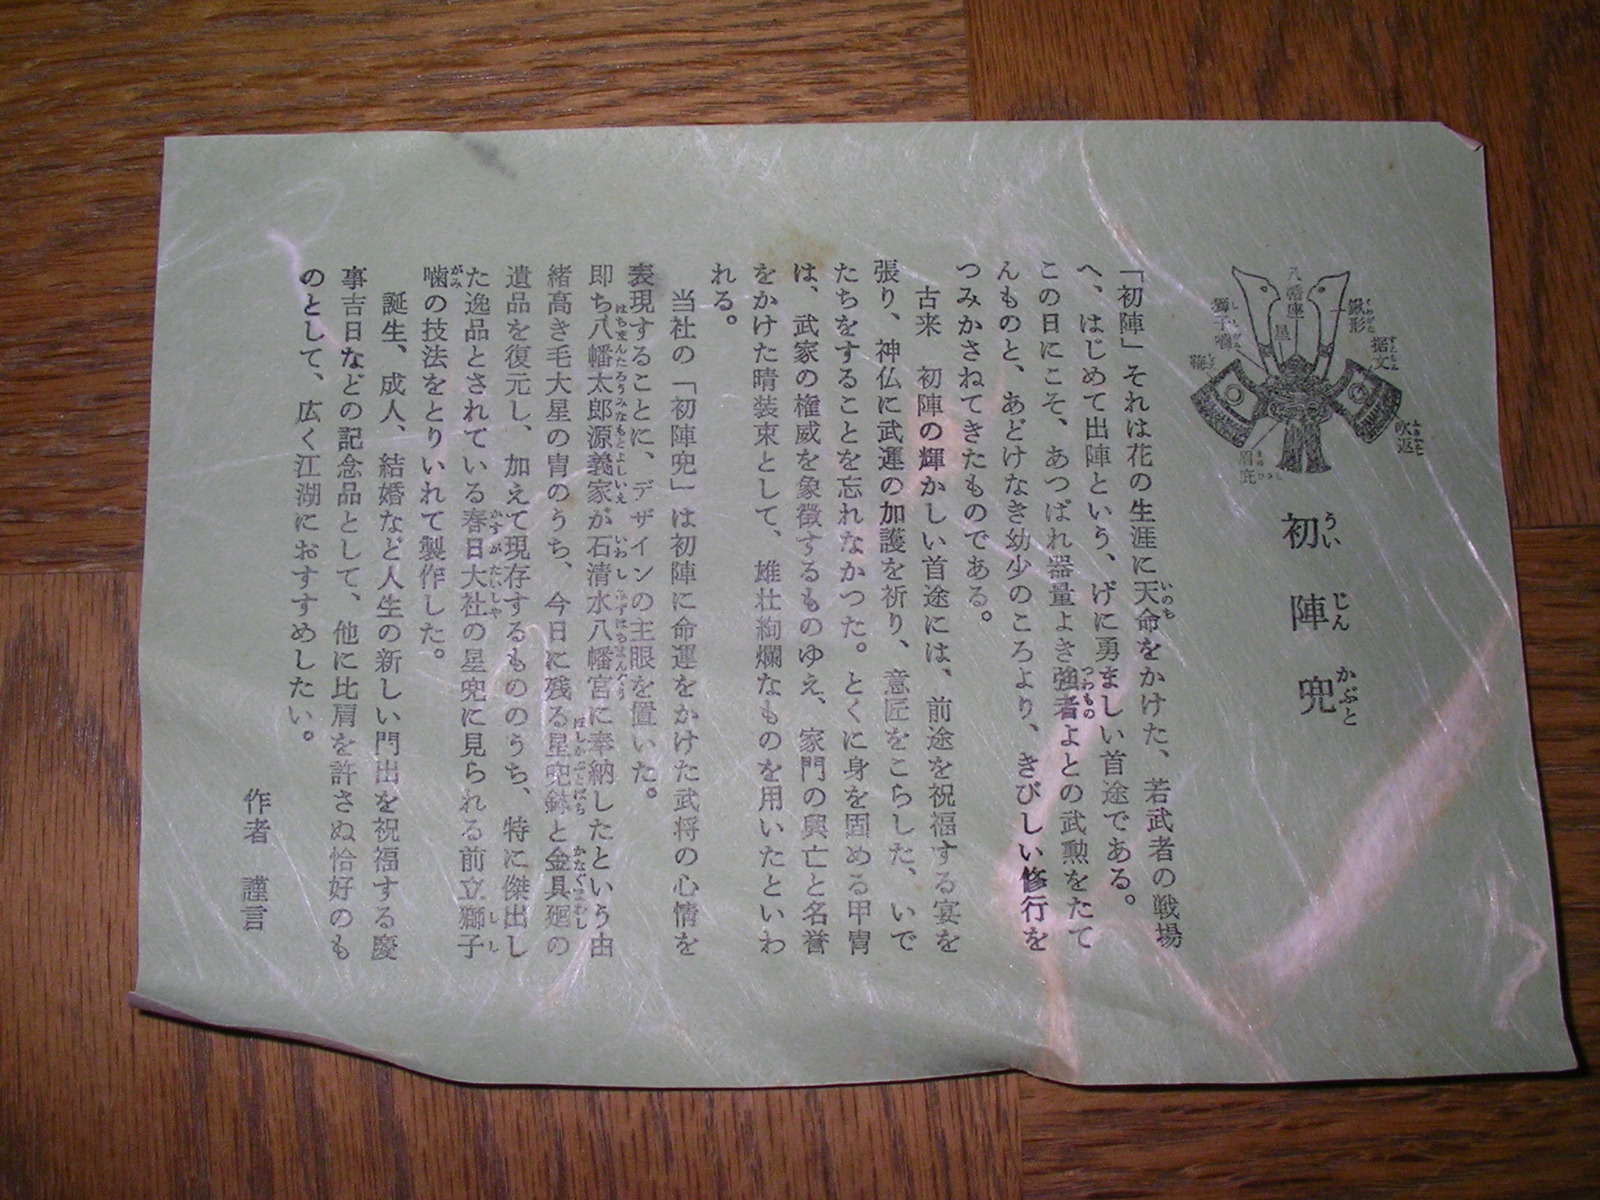 初陣兜
ういじんかぶと
八幡座
鍬形
くわがた
据文
星
獅子噛
しがみ
吹返
眉庇
まびさし
「初陣」それは花の生涯に天命をかけた、若武者の戦場
いのち
へ、はじめて出陣という、げに勇ましい首途である。
この日にこそ、あつぱれ器量よき強者よとの武勲をたて
つわもの
んものと、あどけなき幼少のころより、きびしい修行を
つみかさねてきたものである。
古来 初陣の輝かしい首途には、前途を祝福する宴を
張り、神仏に武運の加護を祈り、意匠をこらした、いで
たちをすることを忘れなかつた。とくに身を固める甲冑
は、武家の権威を象徴するものゆえ、家門の興亡と名誉
をかけた晴装束として、雄壮絢爛なものを用いたといわ
れる。
当社の「初陣兜」は初陣に命運をかけた武将の心情を
表現することに、デザインの主眼を置いた。
即ち八幡太郎源義家が石清水八幡宮に奉納したという由
はちまんたろうみなもとよしいえ いわしみずはちまんぐう
緒高き毛大星の冑のうち、今日に残る星兜鉢と金具廻の
ほしかぶとばち かなぐまわし
遺品を復元し、加えて現存するもののうち、特に傑出し
た逸品とされている春日大社の星兜に見られる前立獅子
かすがたいしや しし
噛の技法をとりいれて製作した。
がみ
誕生、成人、結婚など人生の新しい門出を祝福する慶
事吉日などの記念品として、他に比肩を許さぬ恰好のも
のとして、広く江湖におすすめしたい。
作者 謹言